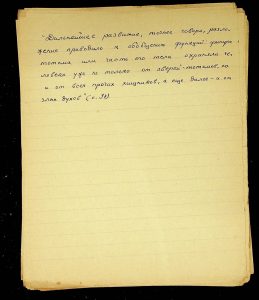 "Дальнейшее развитие, точнее говоря, разло-
жение приводило к обобщению функций фигуры
тотема или часть его тела охраняла че-
ловека уже не только от зверей-тотемов, но
и от всех прочих хищников, а еще далее - и от
злых духов" (с. 98).